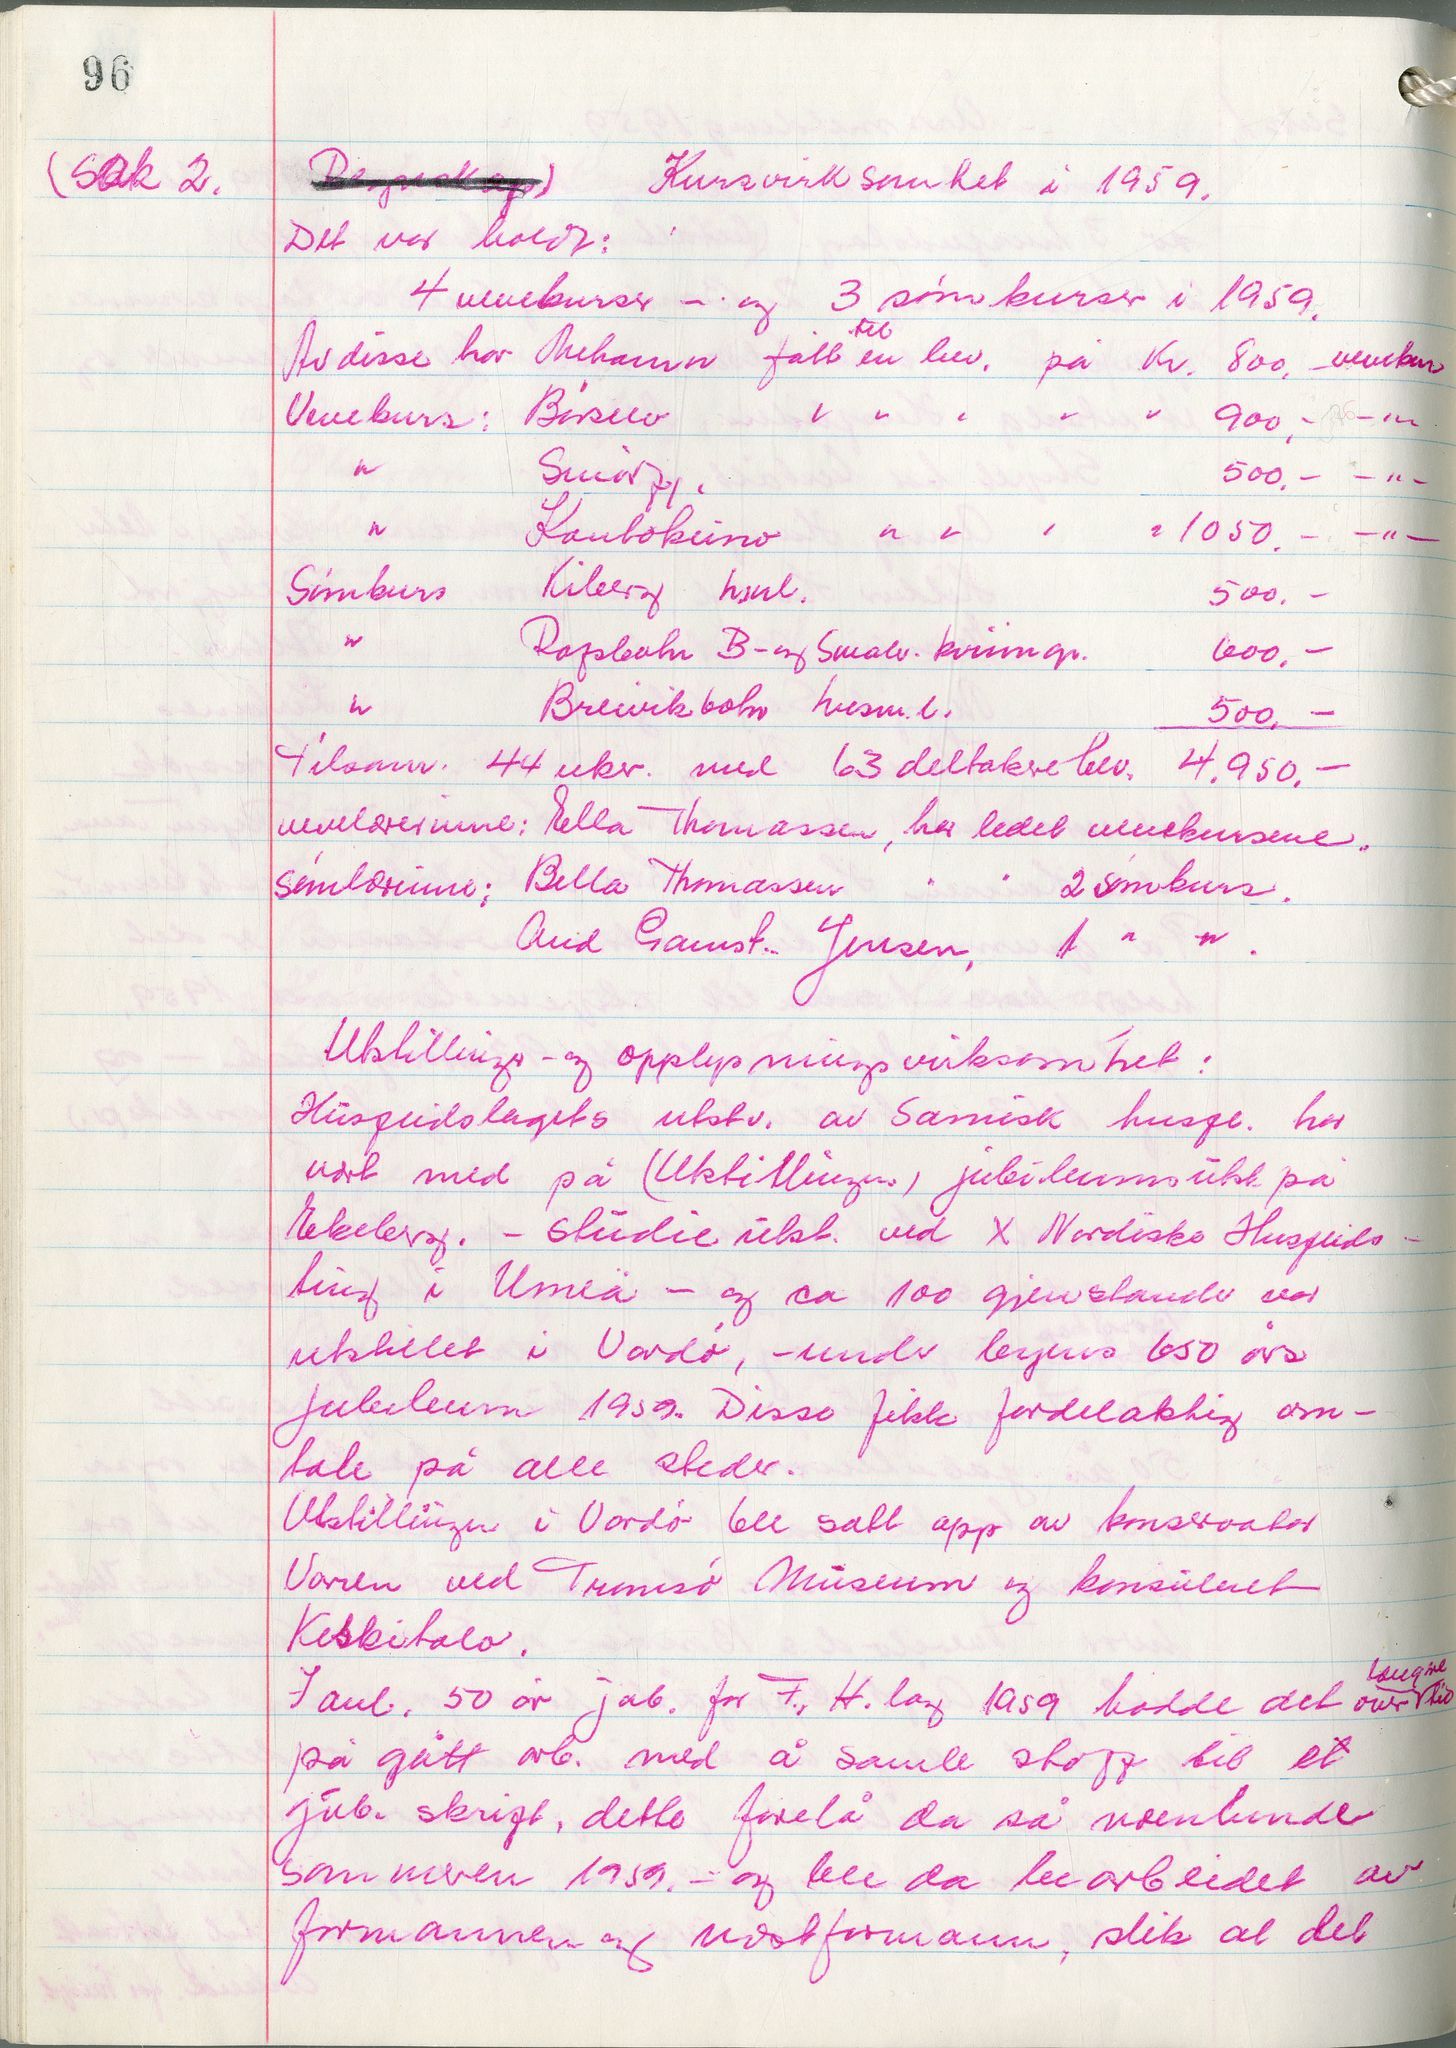 96
(Sak 2. Regnskap) Kursvirksomhet i 1959.
Det var holdt:
4 vevekurser - og 3 sømkurser i 1959.
Av disse har Mehamn fått til en bev. på Kr. 800,- vevekurs
Vevekurs: Børselv " " " " " 900,- -"-
" Smørfj. 500,- -"-
" Kautokeino " " " " 1050,- -"-
Sømkurs Kiberg husml. 500,-
" Rafsbotn B- og Småbr. kvinngr. 600,-
" Breivikbotn husm.l. 500,-
Tilsam. 44 uker. med 63 deltakere bev. 4.950,-
vevelærerinne: Ella Thomassen, har ledet vevekursene.
sømlærerinne: Bella Thomassen " " 2 sømkurs.
Aud Gamst-Jensen, 1 " ".
Utstillings- og opplysningsvirksomhet:
Husflidslagets utst. av Samisk husfl. har
vært med på (Utstillingen) jubileumsutst på
Ekeberg. - studieutst. ved X Nordiske Husflids-
ting i Umeå - og ca 100 gjenstander var
utstillet i Vardø, - under byens 650 års
jubileum 1959. Disse fikk fordelaktig om-
tale på alle steder.
Utstillingen i Vardø ble satt opp av konservator
Vorren ved Tromsø Museum og konsulent
Keskitalo.
I anl. 50 år jub. for F. H. lag 1959 hadde det over lengre tid
på gått arb. med å samle stoff til et
jub. skrift, dette forelå da så noenlunde
sommeren 1959. - og ble da bearbeidet av
formannen og nestformann, slik at det